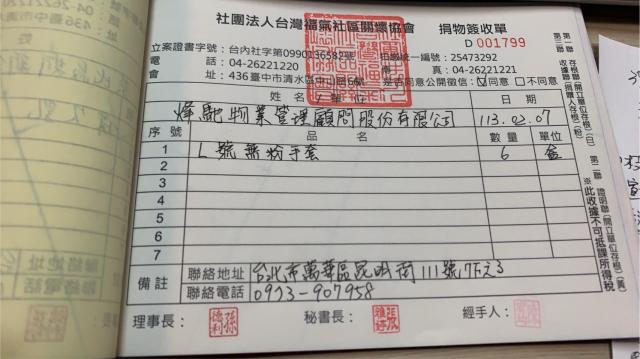 社團法人台灣福氣社區關懷協會 捐物簽收單
D 001799
立案證書字號：台內社字第0990036582號 扣繳統一編號：25473292
電話：04-26221220 傳真：04-26221221
會址：436臺中市清水區中山路6號 是否同意公開徵信：☑同意 □不同意
姓名/單位 日期
烽馳物業管理顧問股份有限公司 113.02.07
序號 品名 數量 單位
1 L號無粉手套 6 盒
2
3
4
5
6
7
備註 聯絡地址 台北市萬華區昆明街111號7F之3
聯絡電話 0923-907958
理事長： 秘書長： 經手人：
第一聯 存根聯(開立單位存根)(白)
第二聯 收據聯(捐贈人存根)(紅)
第三聯 證明聯(開立單位存根)(黃)
※此收據不可抵課所得稅